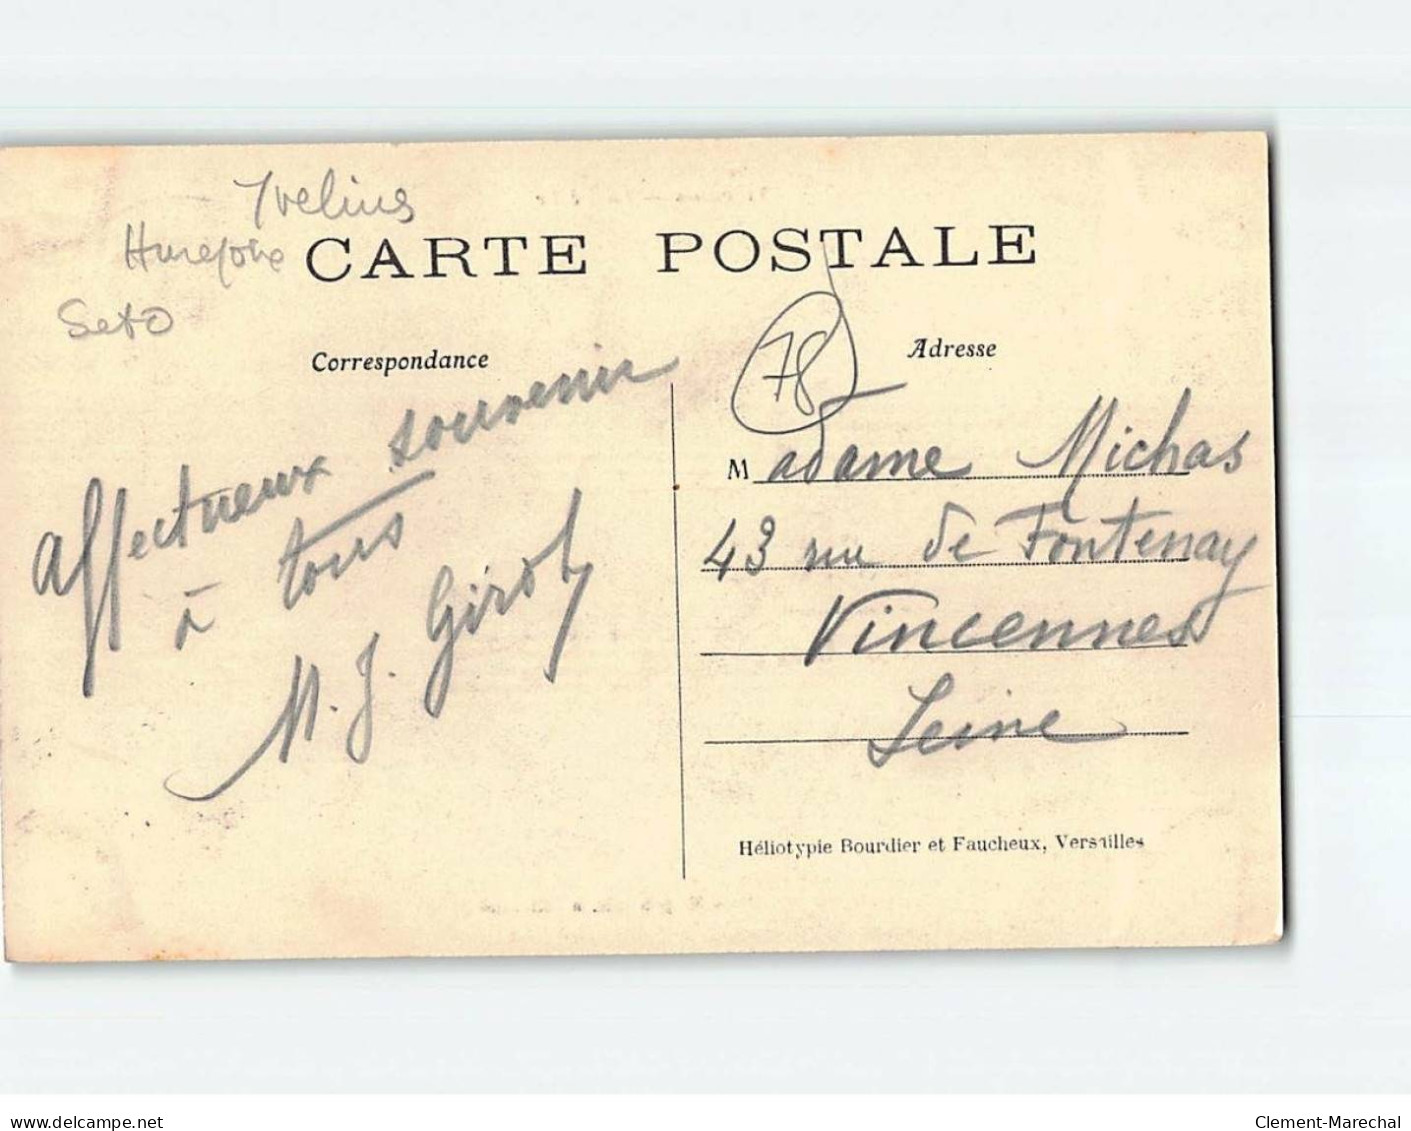 Yvelins
Hurepoix
Seto
CARTE POSTALE
78
Correspondance
Adresse
affectueux souvenir
à tous
M. J. Giroh
Madame Michas
43 rue de Fontenay
Vincennes
Seine
Héliotypie Bourdier et Faucheux, Versailles
www.delcampe.net
Clement-Marechal